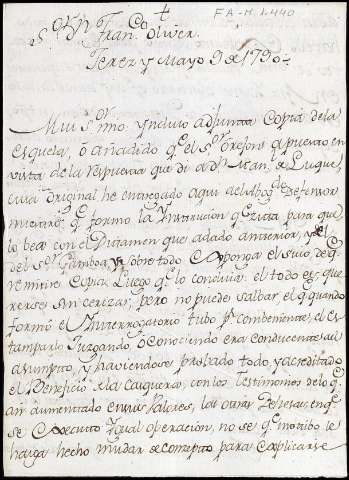 FA-M 1.440
Sor Dn
Franco Oliver.
Jerez y Mayo 9 de 1790
Mui Sor mio yncluio adjunta Copia de la
Esquela, o añadido qe el Sor Orejon a puesto en
vista de la respuesta que di a Dn Juan de Luque,
cuia original he entregado aqui al Defensor
nuestro, qe formo la Ynstrucion qe para que
lo bea con el Dictamen que a dado anterior,
del Sor Gamboa y sobre todo Oponga el suio de qe
remitire Copia Luego qe lo concluia. el todo es que
rerse sincerizar, pero no puede salbar el qe quando
formó el Ynterrogatorio tubo pr combeniente, el es
tamparlo Juzgando, o conociendo era conducente al
asumpto, y haviendose probado todo, y acreditado
el Beneficio de la Casqueria, con los Testimonios de lo qe
an aumentado en sus Valores, las otras Dehesas, en qe
se executo Ygual operacion, no se qe motibo le
haiga hecho mudar de comcepto para explicarse